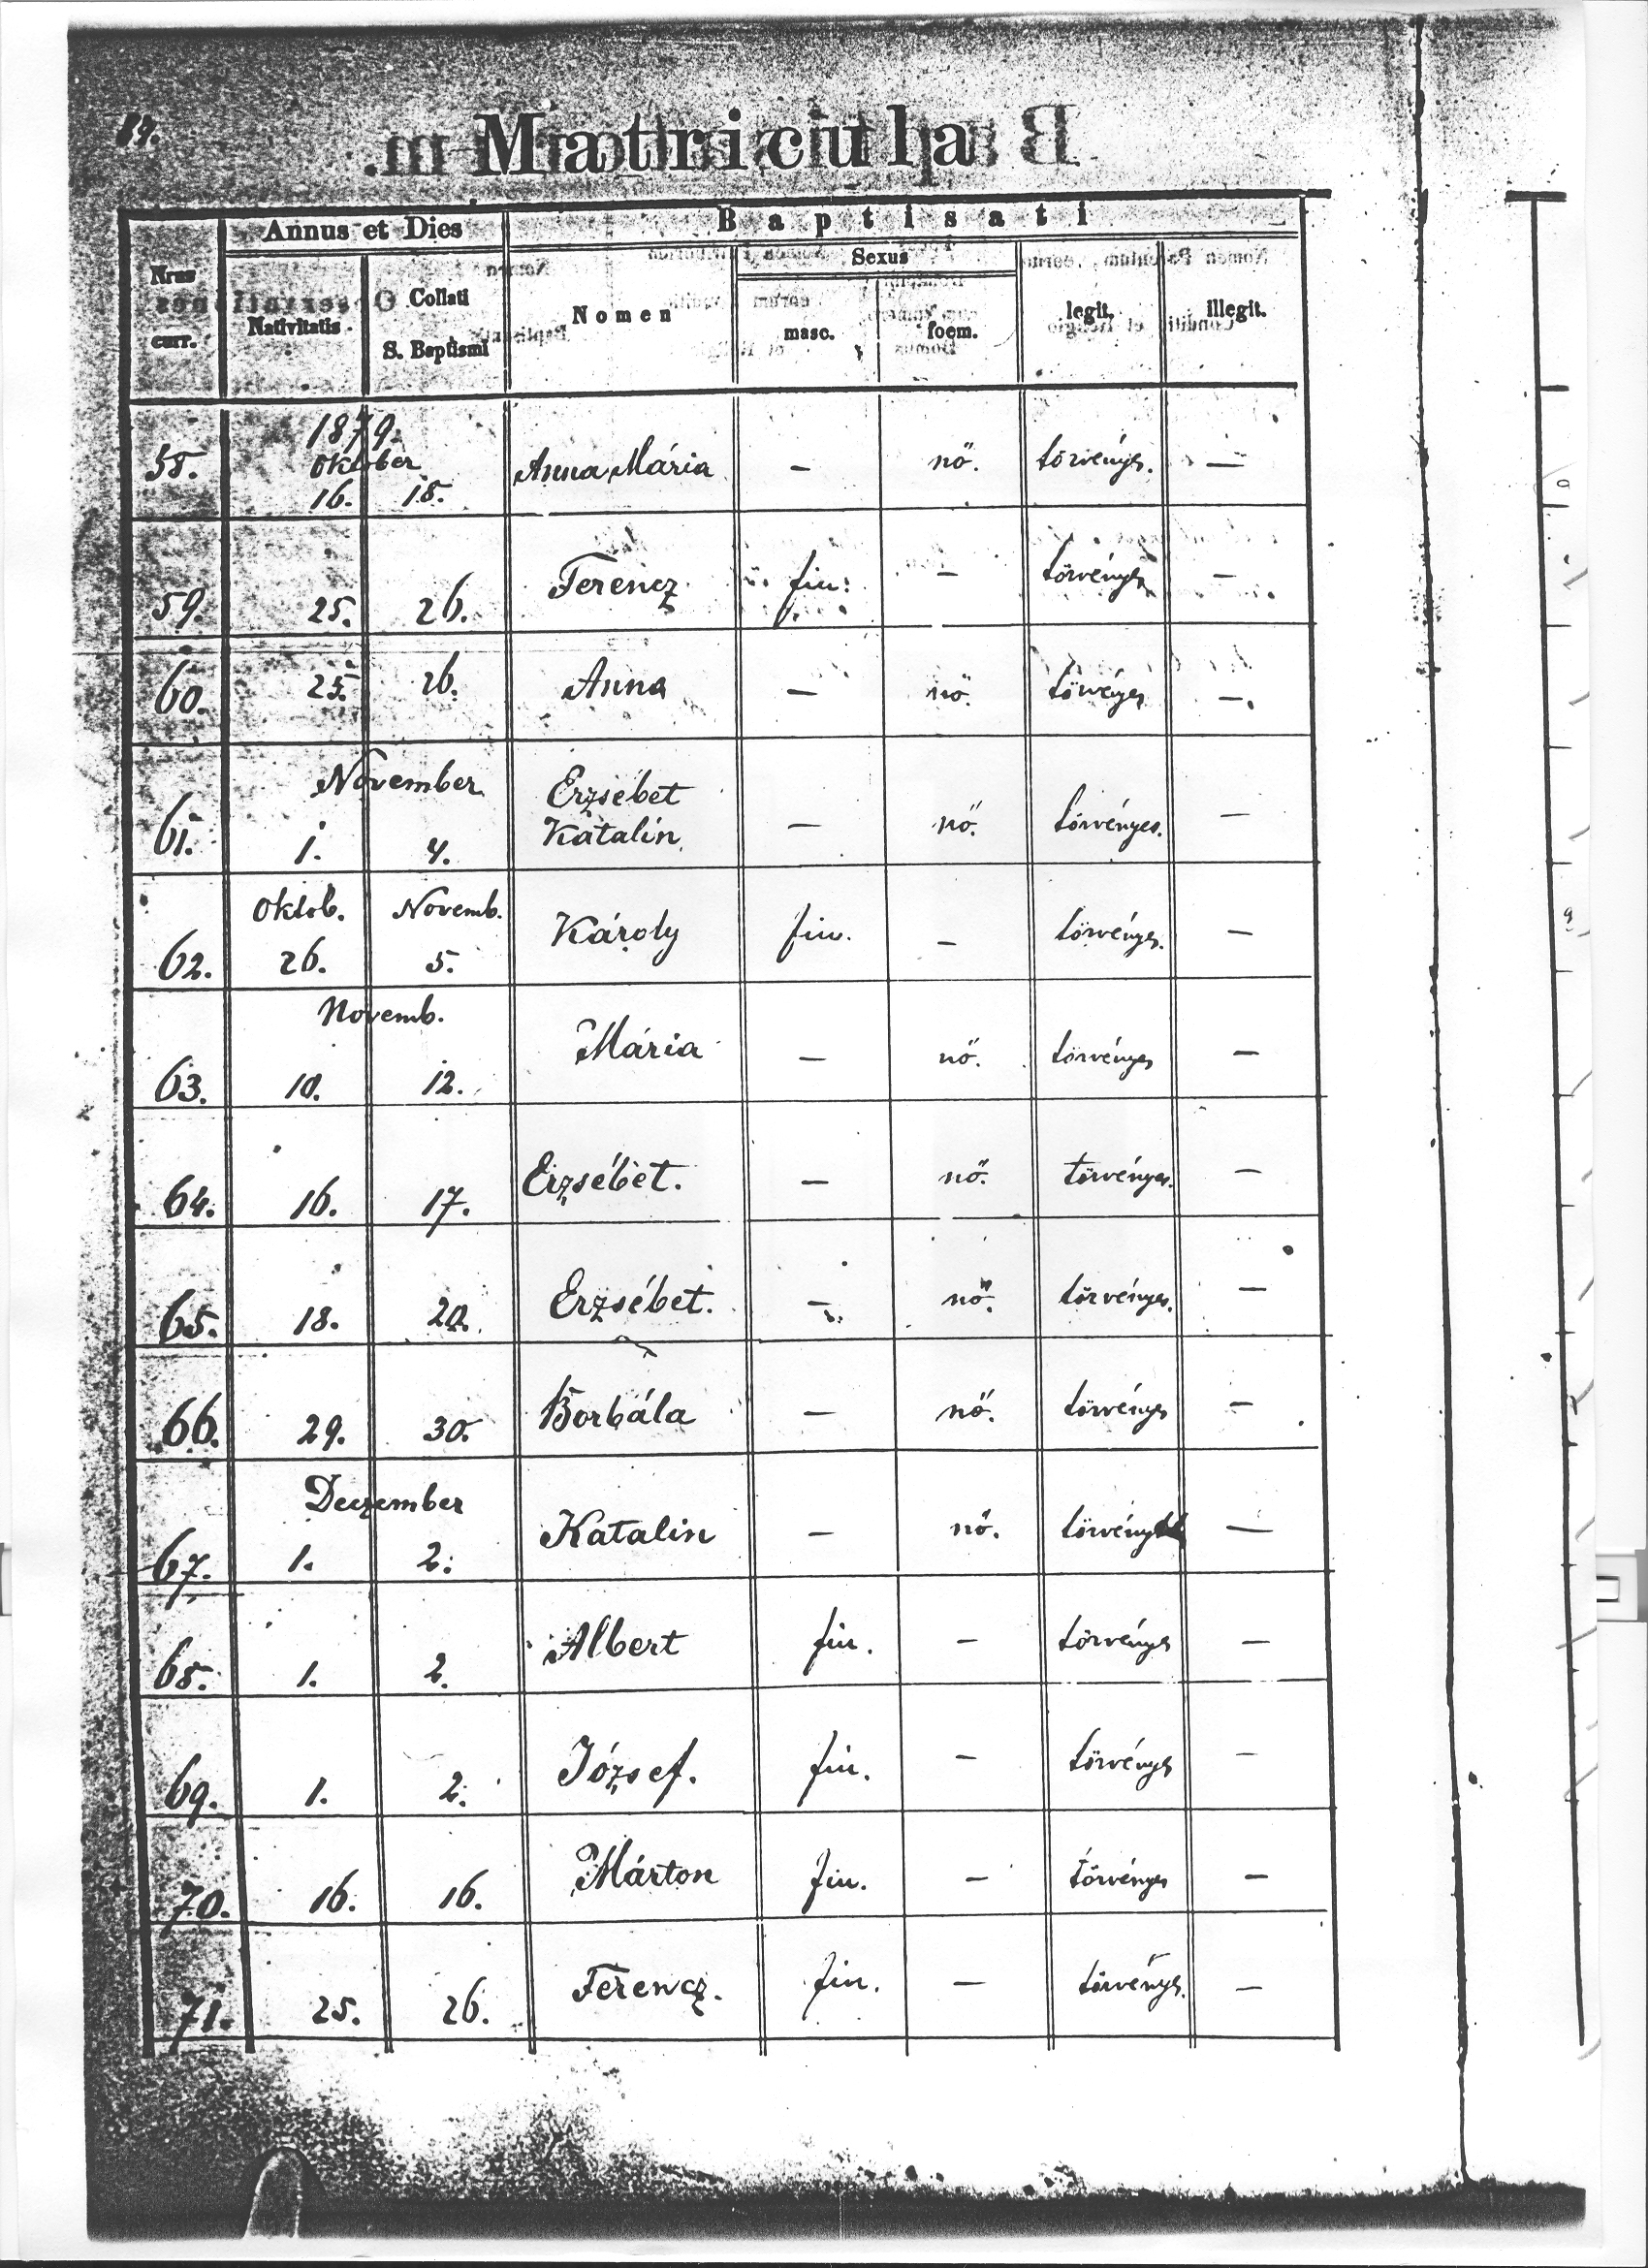 89.
Matricula
Annus et Dies
Baptisati
Nrus
curr.
Nativitatis
Collati
S. Baptismi
Nomen
Sexus
masc.
foem.
legit.
illegit.
1879.
Oktober
58. 16. 18. Anna Mária — nő. törvényes. —
59. 25. 26. Ferencz fiu: — törvényes —
60. 25. 26. Anna — nő. törvényes —.
November
Erzsébet
61. 1. 4. Katalin — nő. törvényes. —
Oktob. Novemb.
62. 26. 5. Károly fiu. — törvényes. —
Novemb.
63. 10. 12. Mária — nő. törvényes —
64. 16. 17. Erzsébet. — nő. törvényes. —
65. 18. 20. Erzsébet. — nő. törvényes. —
66. 29. 30. Borbála — nő. törvényes —
Deczember
67. 1. 2. Katalin — nő. törvényes —
68. 1. 2. Albert fiu. — törvényes —
69. 1. 2. József. fiu. — törvényes —
70. 16. 16. Márton fiu. — törvényes —
71. 25. 26. Ferencz. fiu. — törvényes. —